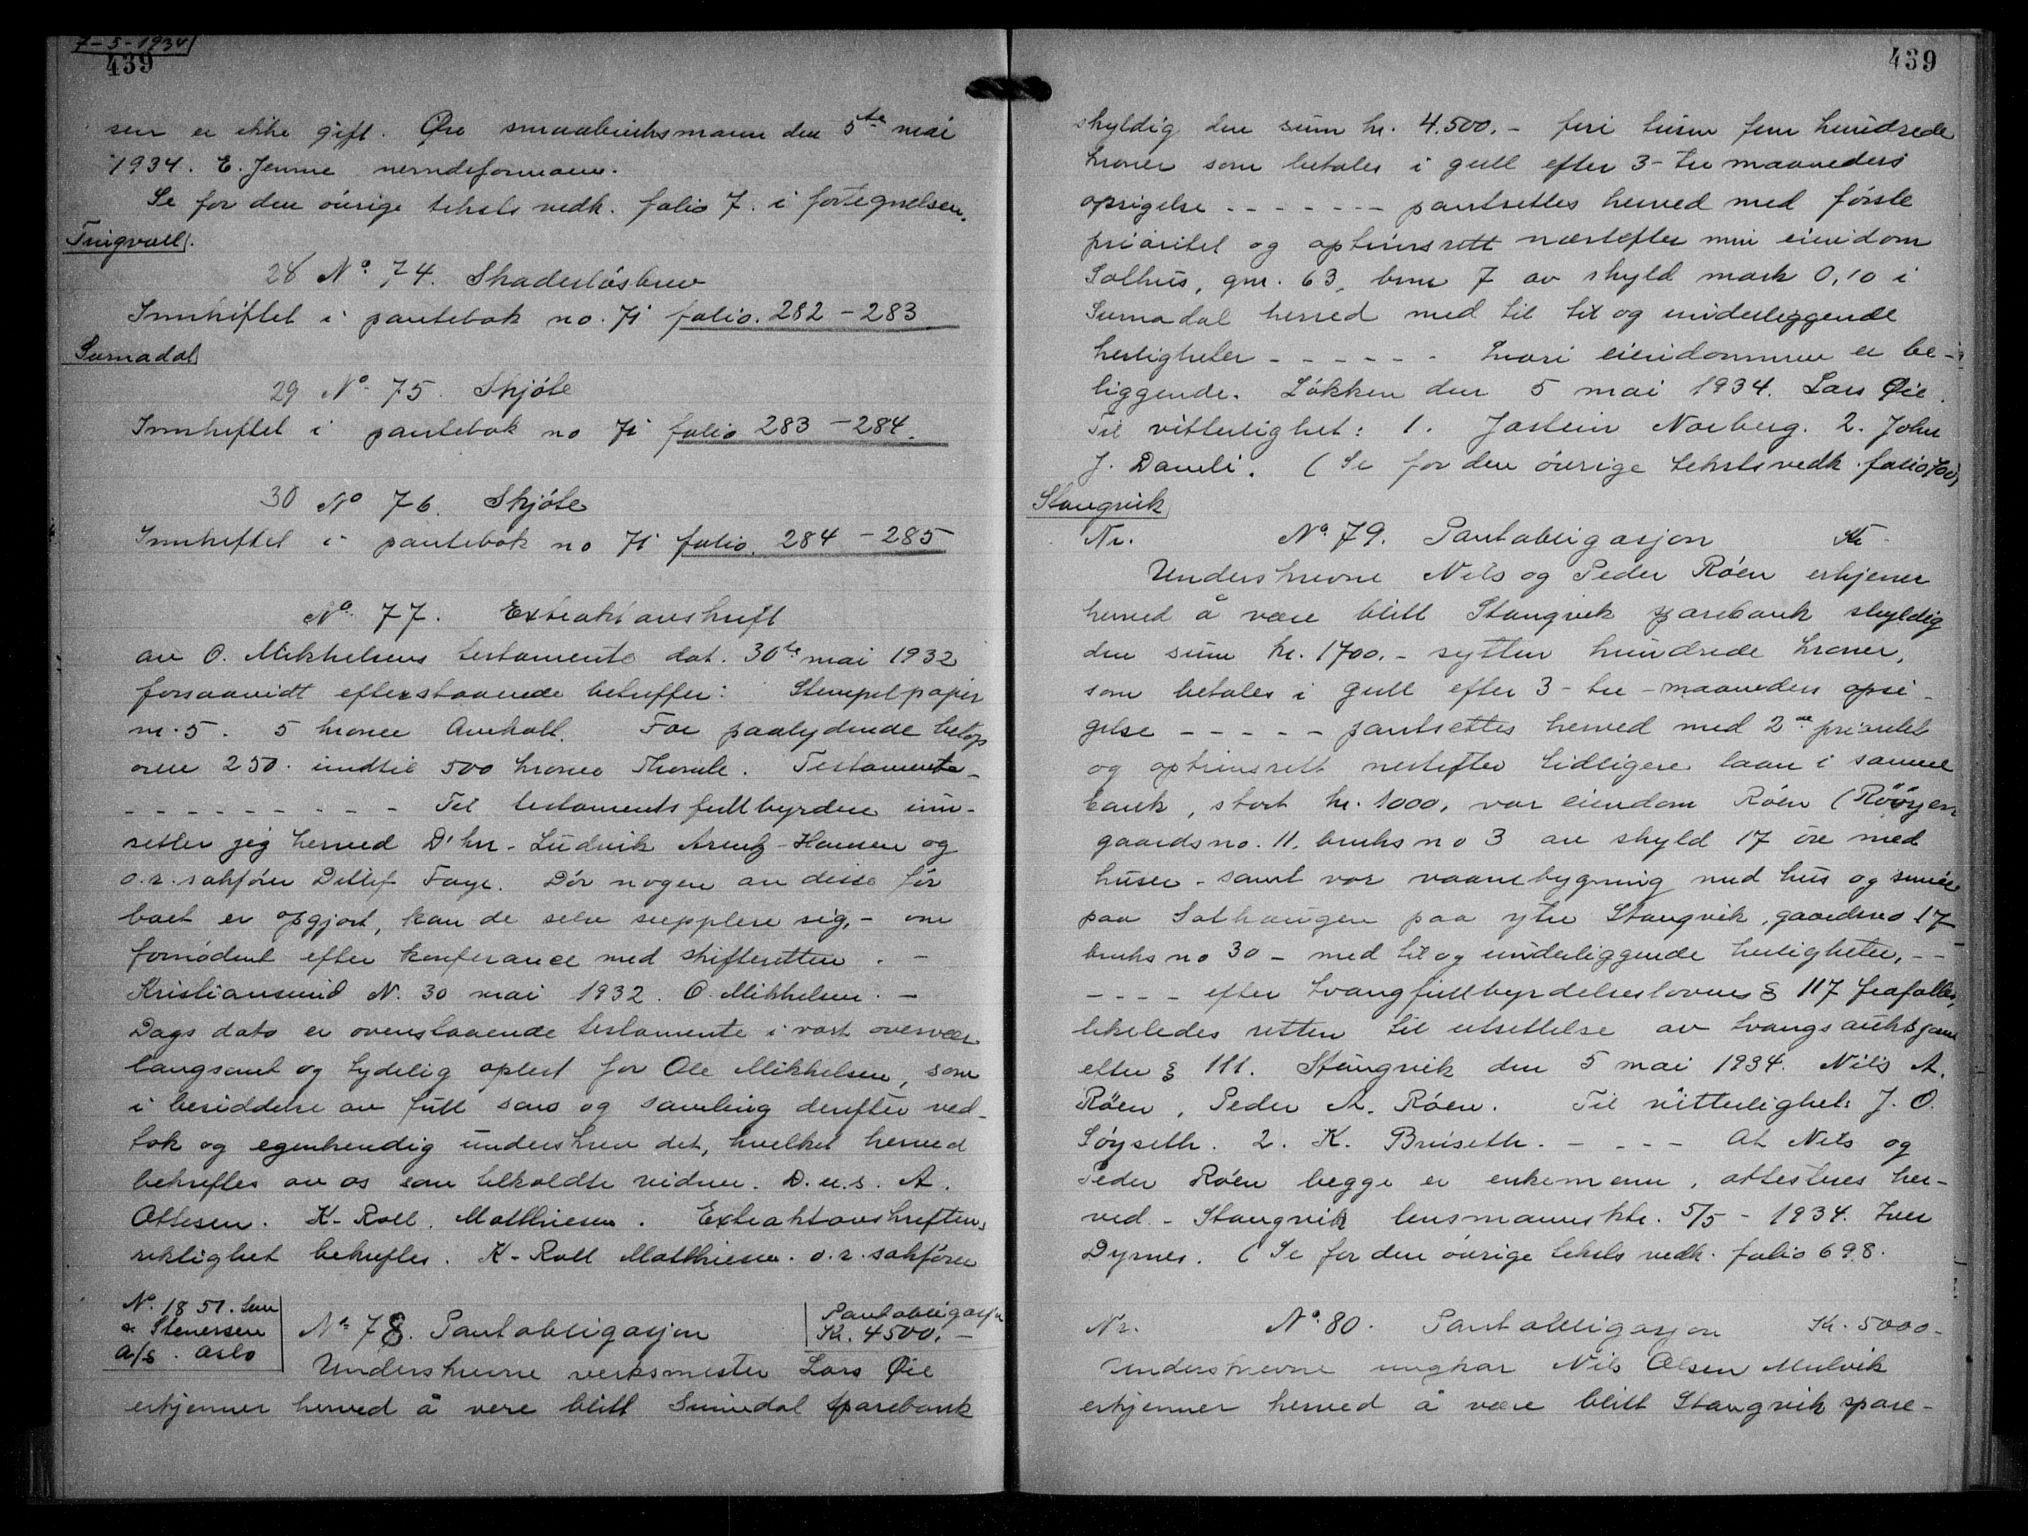 7-5-1934
439
sen er ikke gift. Øre smaabruksmann den 5te mai
1934. E. Jenme nemdeformann.
Se for den övrige teksts vedk. folio 7. i fortegnelsen.
Tingvoll.
28 No 74. Skadeslösbrev
Innheftet i pantebok no. 71 folio. 282 - 283
Surnadal
29 No 75. Skjöte
Innheftet i pantebok no 71 folio 283 - 284.
30 No 76. Skjöte
Innheftet i pantebok no 71 folio. 284 - 285
No 77. Extraktavskrift
av O. Mikkelsens testamente dat. 30te mai 1932
forsaavidt efterstaaende betreffer: Stempelpapir
nr. 5. 5 kroner Overhalt. For paalydende belöp
over 250. indtil 500 kroner Thomle. Testamente
- - - - - - - - - Til testamentsfullbyrdere inn-
setter jeg herved D'hrr. Ludvik Arentz-Hansen og
o.r.sakförer Ditlef Faye. Dör nogen av disse för
boet er opgjort, kan de selv supplere sig, - om
fornödent efter konferance med skifteretten. -
Kristiansund N. 30 mai 1932. O. Mikkelsen. -
Dags dato er ovenstaaende testamente i vort overvær
langsomt og tydelig oplest for Ole Mikkelsen, som
i besiddelse av full sans og samling derefter ved-
tok og egenhendig underskrev det, hvilket herved
bekreftes av os som tilkaldte vidner. D.u.s. A.
Ottesen. K-Roll. Matthiesen. Extraktavskriftens
riktighet bekreftes. K-Roll Matthiesen. o.r.sakförer
No. 1851. Sem
& Stenersen
A/S. Oslo
No 78. Pantobligasjon
Pantobligasjon
Kr. 4500. -
Underskrevne verksmester Lars Øie
erkjenner herved å være blitt Surnadal sparebank
439
skyldig den sum kr. 4.500. - fire tusen fem hundrede
kroner som betales i gull efter 3- tre maaneders
opsigelse - - - - - - - pantsettes herved med förste
prioritet og optrinsrett næstefter min eiendom
Solhus, gnr. 63, bnr 7 av skyld mark 0,10 i
Surnadal herred med til til og underliggende
herligheter - - - - - - hvori eiendommen er be-
liggende. Løkken den 5 mai 1934. Lars Øie.
Til vitterlighet: 1. Jostein Norberg. 2. John
J. Damli. (Se for den övrige tekstsvedk. folio 700)
Stangvik
Nr. No 79. Pantobligasjon Kr -
Underskrevne Nils og Peder Röen erkjener
herved å være blitt Stangvik sparebank skyldig
den sum kr. 1700. - sytten hundrede kroner,
som betales i gull efter 3 - tre - maaneders opsi-
gelse - - - - - pantsettes herved med 2en prioritet
og optrinsrett nestefter tidligere laan i samme
bank, stort kr. 1000, vor eiendom Röen (Rööyen
gaardsno. 11. bruks no 3 av skyld 17 öre med
huser - samt vor vaanebygning med hus og smie
paa Solhaugen paa ytre Stangvik, gaardsno 17
bruks no 30 - med til og underliggende herligheter, - -
- - - - efter tvangfullbyrdelseslovens § 117 frafalles,
likeledes retten til utsettelse av tvangsauktsjonen
efter § 111. Stangvik den 5 mai 1934. Nils A.
Röen, Peder A. Röen. Til vitterlighet: J. O.
Söyseth. 2. K. Bruseth. - - - - At Nils og
Peder Röen begge er enkemenn, attesteres her-
ved. - Stangvik lensmannsktr. 5/5 - 1934. Iver
Dyrnes. (Se for den övrige teksts vedk. folio 698.
Nr. No. 80. Pantobligasjon Kr. 5000.-
Underskrevne ungkar Nils Olsen Mulvik
erkjenner herved å være blitt Stangvik spare-